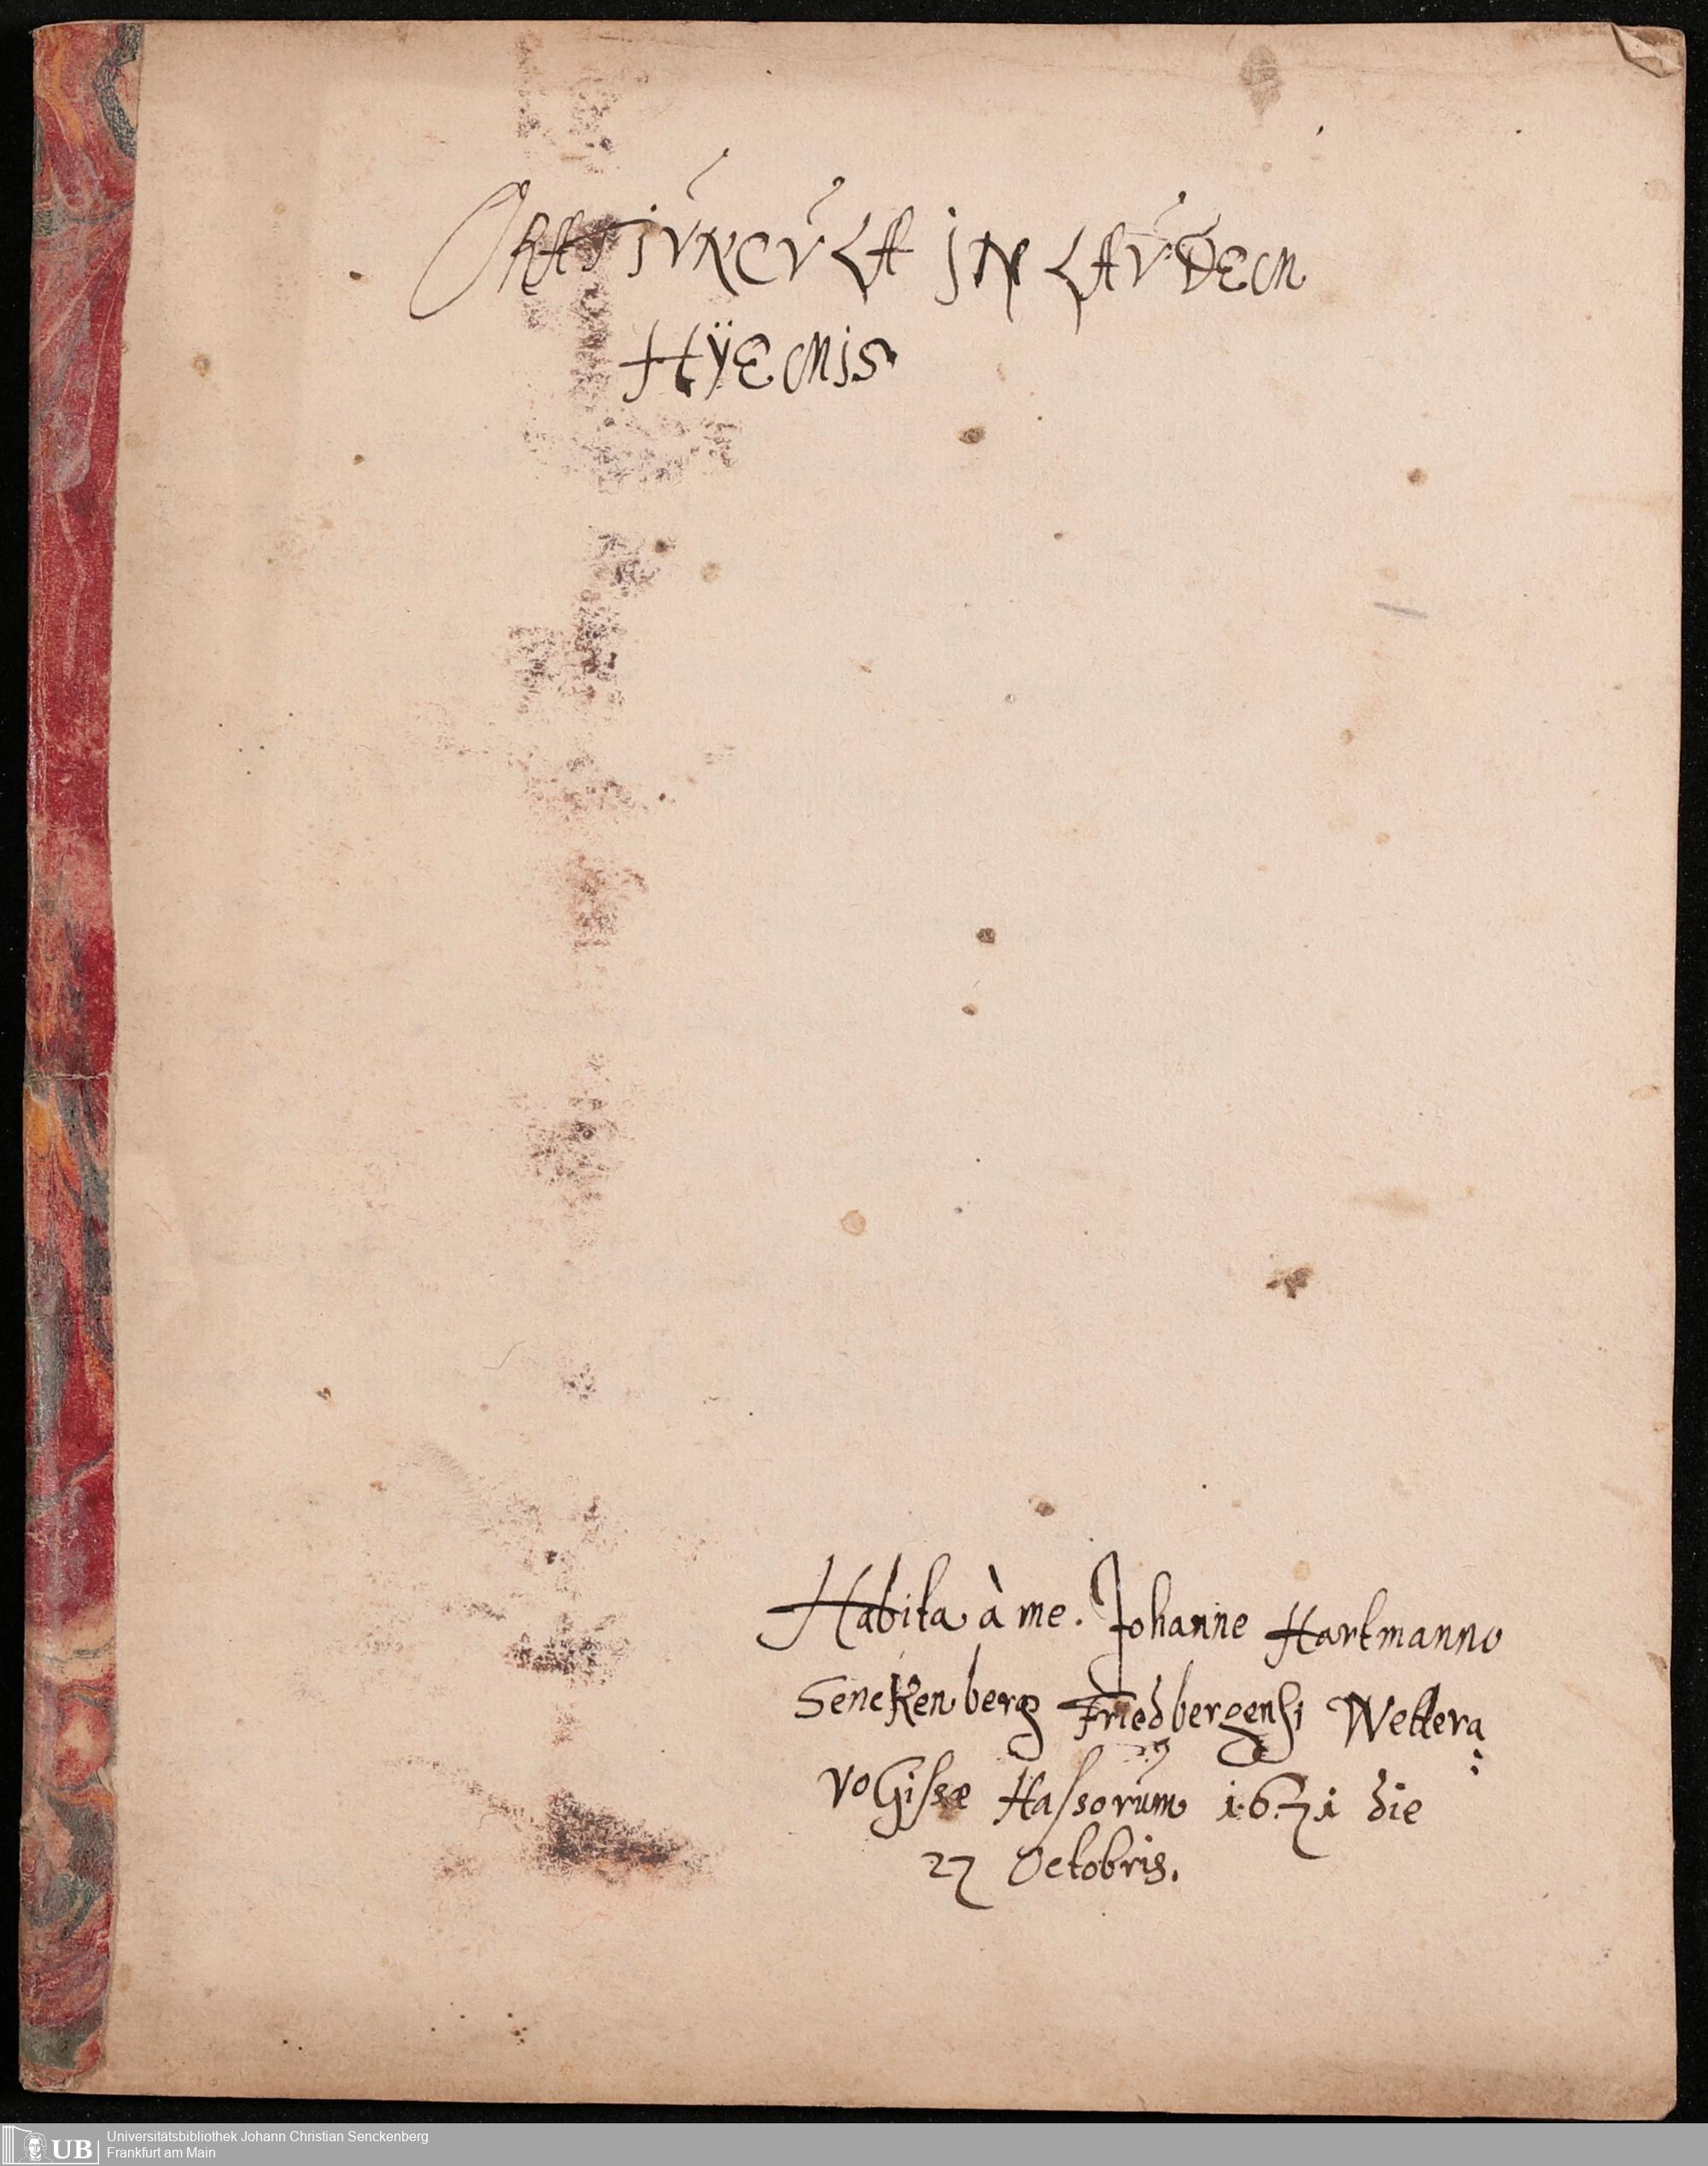 ORATIUNCULA IN LAUDEM
HŸEMIS
Habita à me. Johanne Hartmanno
Senckenberg Friedbergensi Wettera
vo Gissæ Hassorum 1671 die
27 Octobris.
UB Universitätsbibliothek Johann Christian Senckenberg
Frankfurt am Main